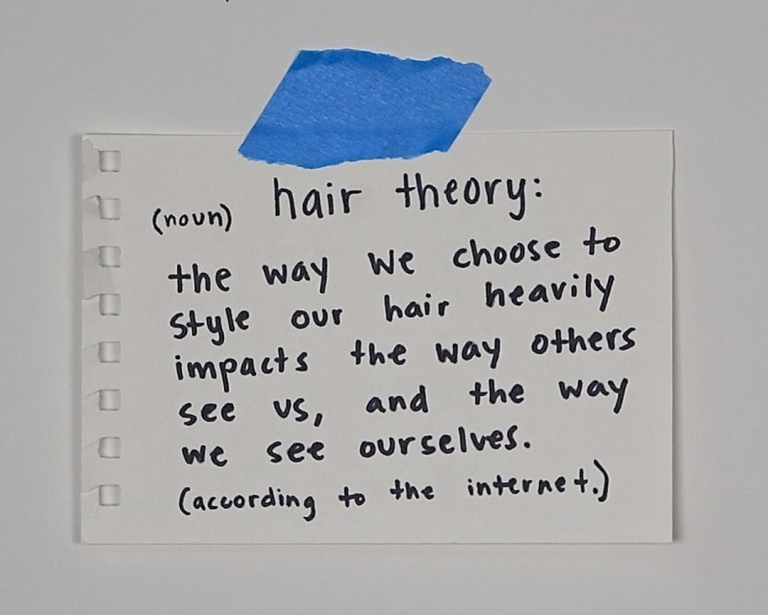 (noun) hair theory:
the way we choose to
style our hair heavily
impacts the way others
see us, and the way
we see ourselves.
(according to the internet.)